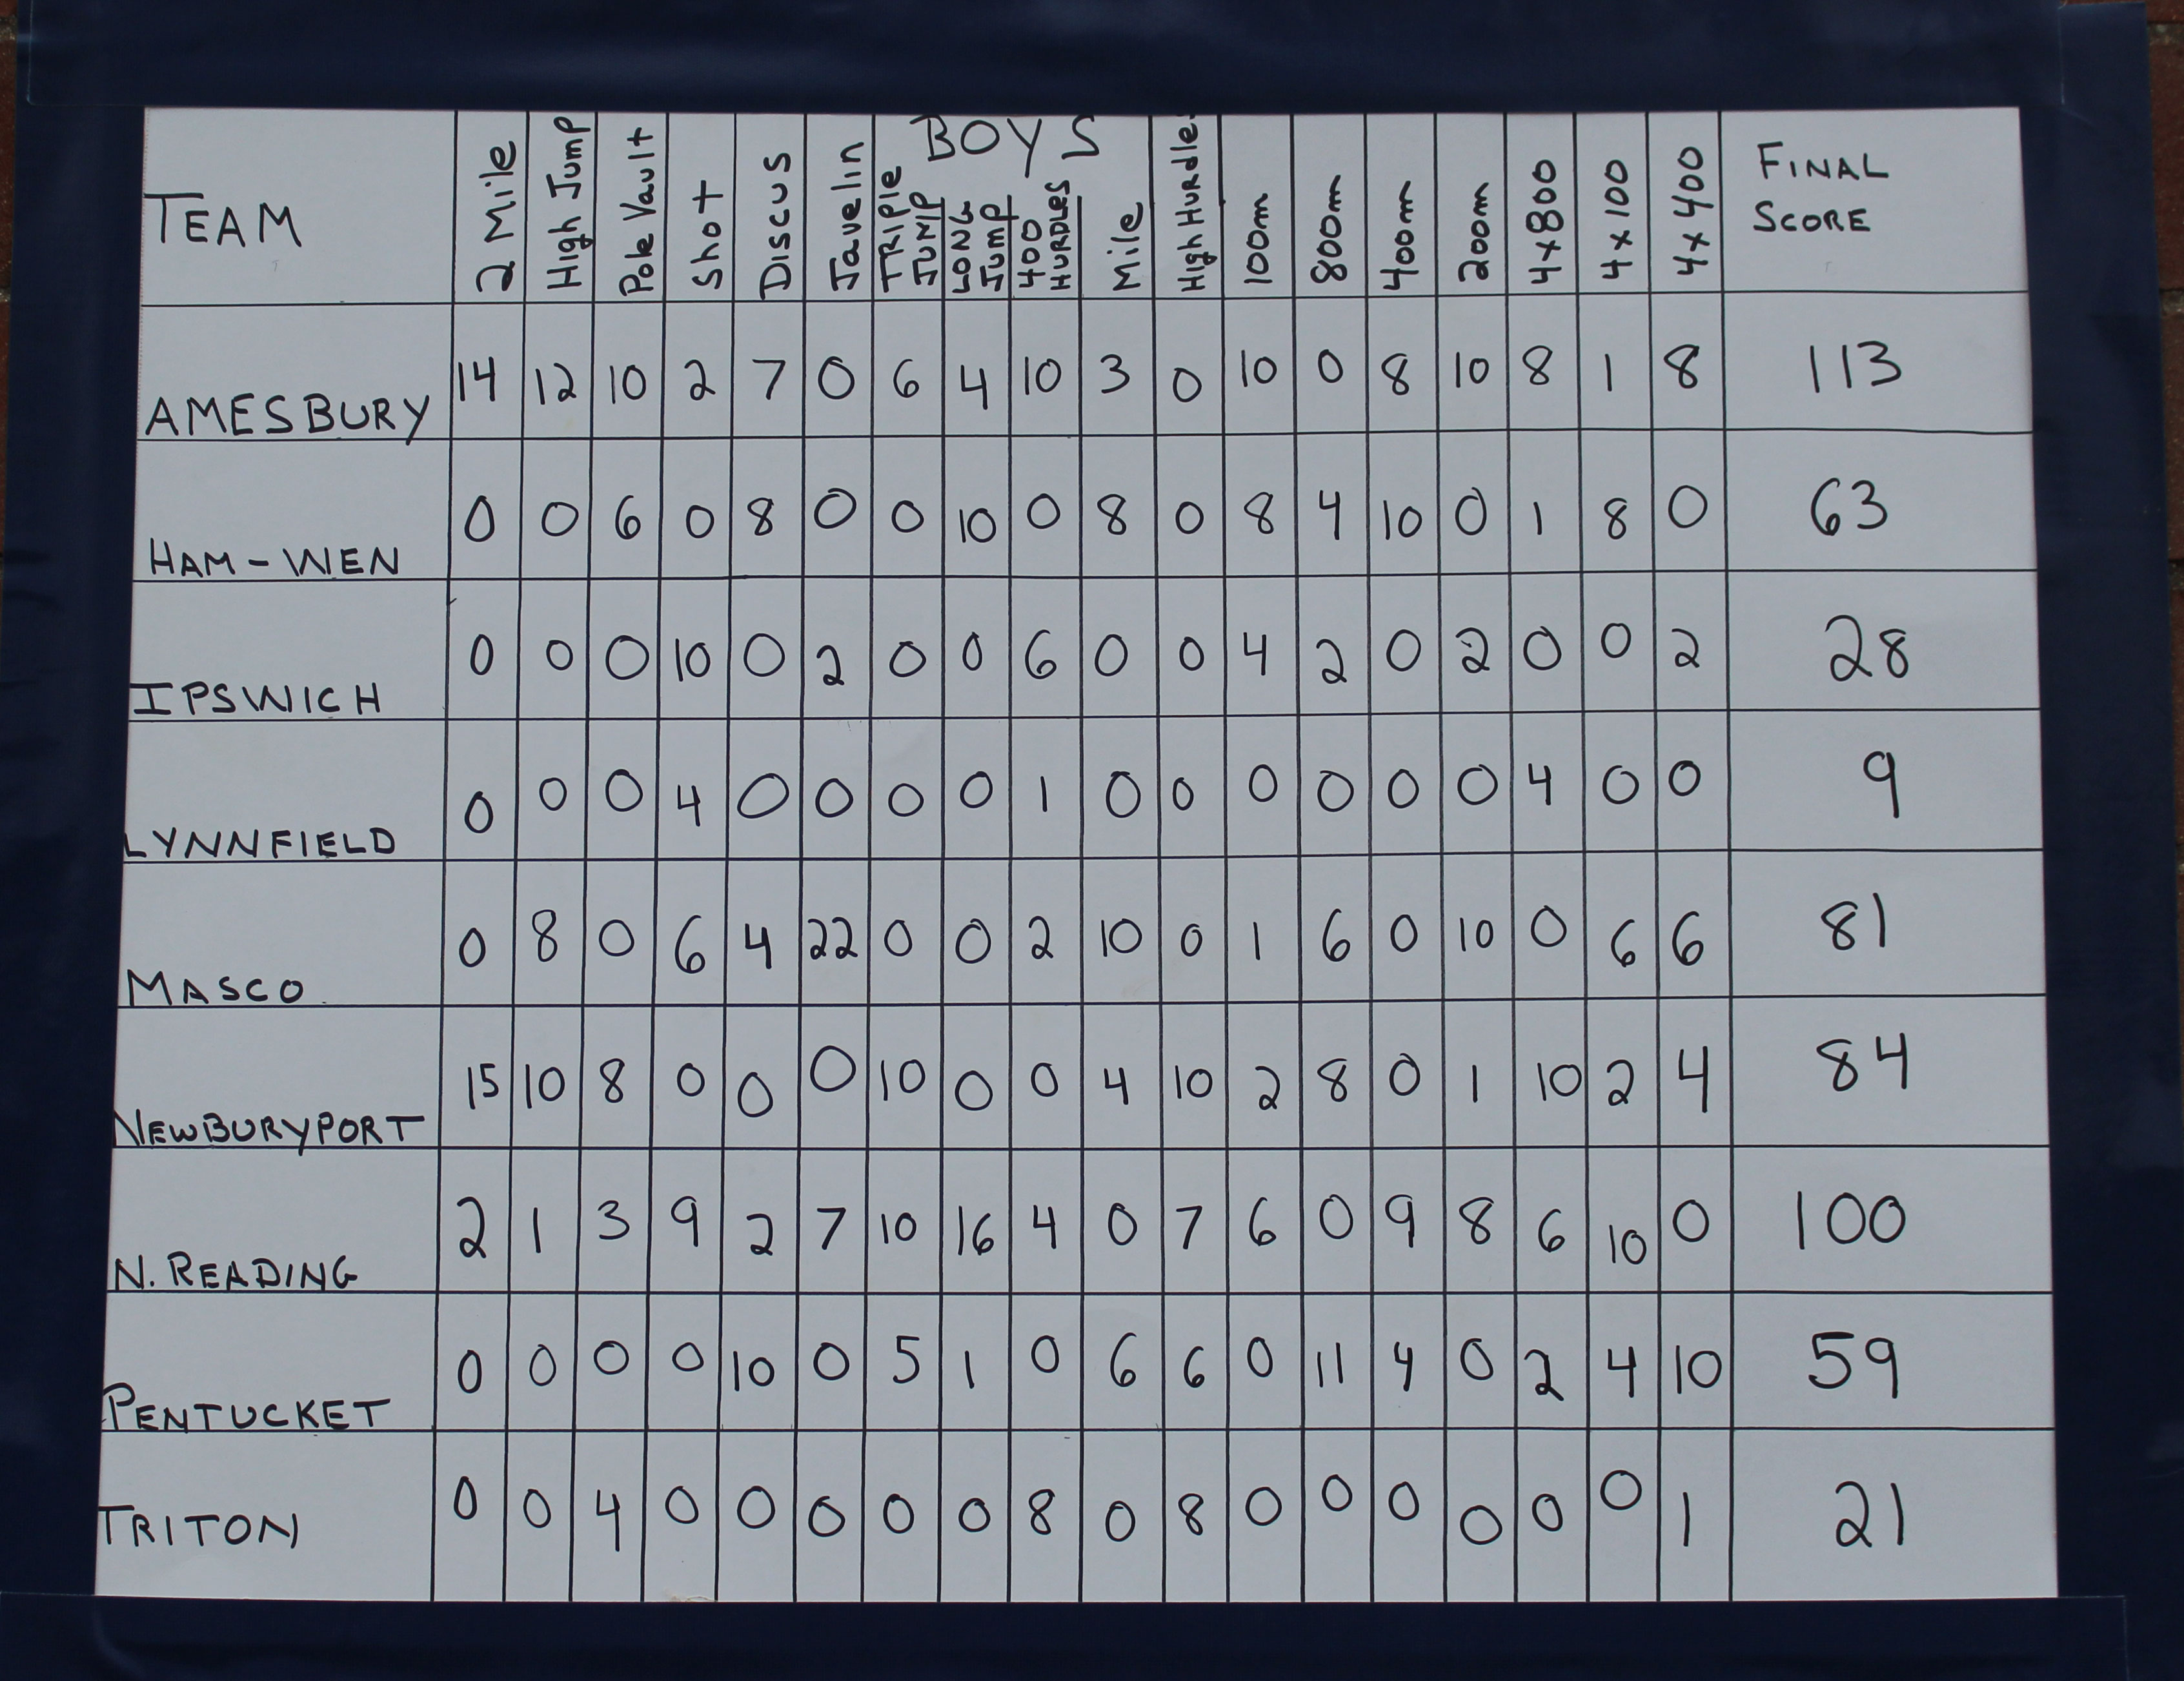 BOYS
TEAM 2 Mile High Jump Pole Vault Shot Discus Javelin TRIPLE JUMP LONG Jump 400 HURDLES Mile High Hurdle 100m 800m 400m 200m 4x800 4x100 4x400 FINAL SCORE
AMESBURY 14 12 10 2 7 0 6 4 10 3 0 10 0 8 10 8 1 8 113
HAM-WEN 0 0 6 0 8 0 0 10 0 8 0 8 4 10 0 1 8 0 63
IPSWICH 0 0 0 10 0 2 0 0 6 0 0 4 2 0 2 0 0 2 28
LYNNFIELD 0 0 0 4 0 0 0 0 1 0 0 0 0 0 0 4 0 0 9
MASCO 0 8 0 6 4 22 0 0 2 10 0 1 6 0 10 0 6 6 81
NEWBURYPORT 15 10 8 0 0 0 10 0 0 4 10 2 8 0 1 10 2 4 84
N. READING 2 1 3 9 2 7 10 16 4 0 7 6 0 9 8 6 10 0 100
PENTUCKET 0 0 0 0 10 0 5 1 0 6 6 0 11 4 0 2 4 10 59
TRITON 0 0 4 0 0 0 0 0 8 0 8 0 0 0 0 0 0 1 21